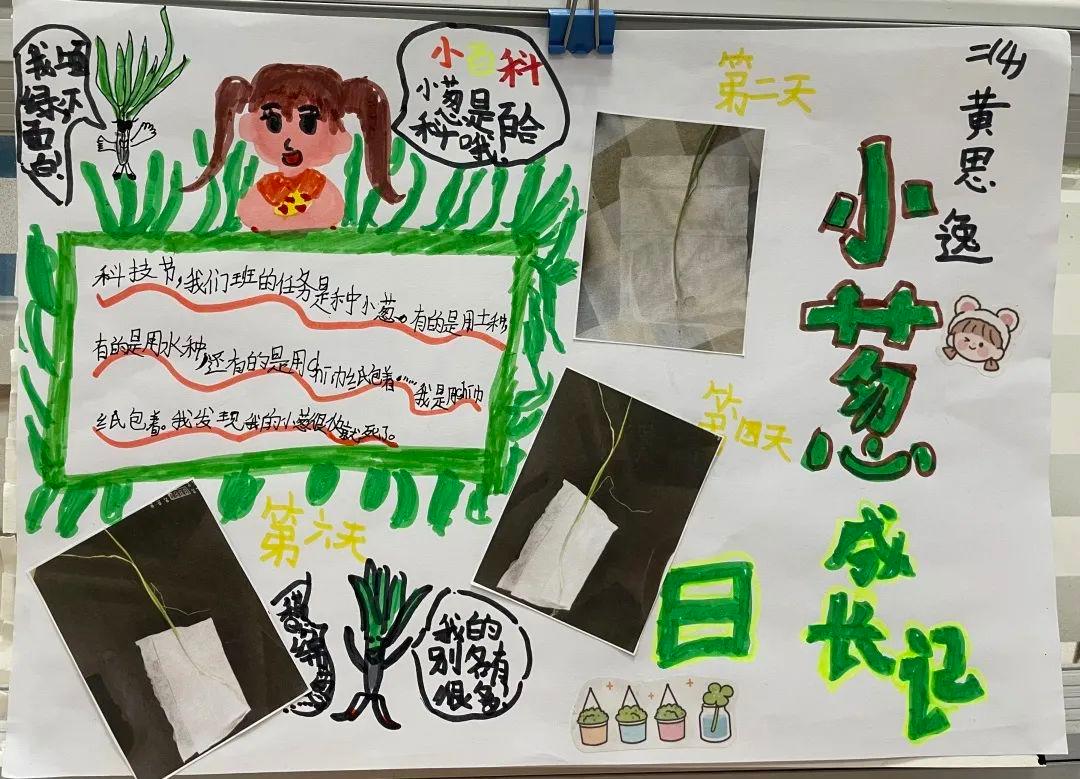 二(4)
黄思逸
小葱
成长记
日
小百科
小葱是
百合
科哦!
科技节,我们班的任务是种小葱。有的是用土种,
有的是用水种,还有的是用纸巾纸包着……我是用纸巾
纸包着。我发现我的小葱很快就死了。
第二天
第四天
第六天
我的
别名有
很多